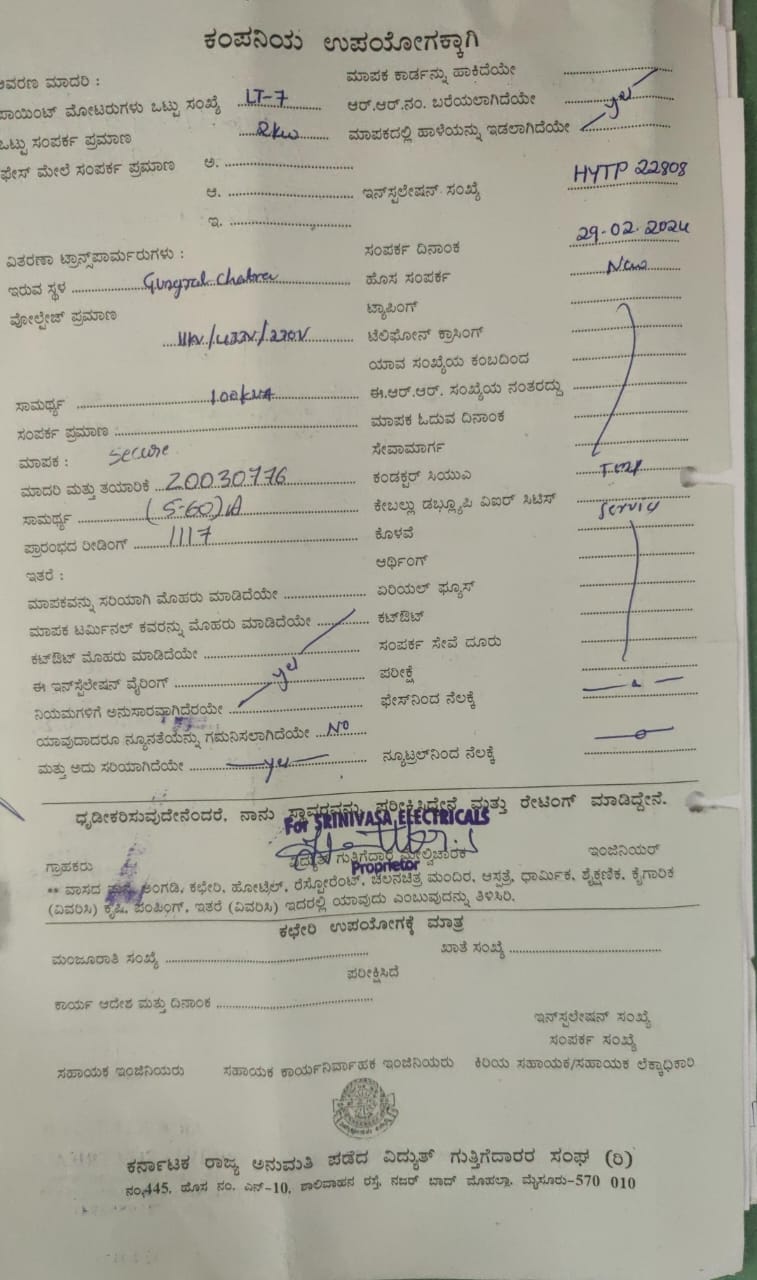 ಕಂಪನಿಯ ಉಪಯೋಗಕ್ಕಾಗಿ
ಆವರಣ ಮಾದರಿ : ಮಾಪಕ ಕಾರ್ಡನ್ನು ಹಾಕಿದೆಯೇ
ಪಾಯಿಂಟ್ ಮೋಟರುಗಳು ಒಟ್ಟು ಸಂಖ್ಯೆ LT-7 ಆರ್.ಆರ್.ನಂ. ಬರೆಯಲಾಗಿದೆಯೇ yes
ಒಟ್ಟು ಸಂಪರ್ಕ ಪ್ರಮಾಣ 2kw ಮಾಪಕದಲ್ಲಿ ಹಾಳೆಯನ್ನು ಇಡಲಾಗಿದೆಯೇ
ಫೇಸ್ ಮೇಲೆ ಸಂಪರ್ಕ ಪ್ರಮಾಣ ಅ.
ಆ. ಇನ್‌ಸ್ಟಲೇಷನ್ ಸಂಖ್ಯೆ HYTP 22808
ಇ.
ವಿತರಣಾ ಟ್ರಾನ್ಸ್‌ಪಾರ್ಮರುಗಳು : ಸಂಪರ್ಕ ದಿನಾಂಕ 29-02-2024
ಇರುವ ಸ್ಥಳ ಹೊಸ ಸಂಪರ್ಕ New
ವೋಲ್ಟೇಜ್ ಪ್ರಮಾಣ ಟ್ಯಾಪಿಂಗ್
11kv/433V/230V ಟೆಲಿಫೋನ್ ಕ್ರಾಸಿಂಗ್
ಯಾವ ಸಂಖ್ಯೆಯ ಕಂಬದಿಂದ
ಸಾಮರ್ಥ್ಯ 100kVA ಈ.ಆರ್.ಆರ್. ಸಂಖ್ಯೆಯ ನಂತರದ್ದು
ಸಂಪರ್ಕ ಪ್ರಮಾಣ ಮಾಪಕ ಓದುವ ದಿನಾಂಕ
ಮಾಪಕ : Secure ಸೇವಾಮಾರ್ಗ
ಮಾದರಿ ಮತ್ತು ತಯಾರಿಕೆ 20030776 ಕಂಡಕ್ಟರ್ ಸಿಯುಎ Temp
ಸಾಮರ್ಥ್ಯ (5-60)A ಕೇಬಲ್ಲು ಡಬ್ಲ್ಯೂಪಿ ವಿಐರ್ ಸಿಟಿಸ್ Service
ಪ್ರಾರಂಭದ ರೀಡಿಂಗ್ 1117 ಕೊಳವೆ
ಇತರೆ : ಆರ್ಥಿಂಗ್
ಮಾಪಕವನ್ನು ಸರಿಯಾಗಿ ಮೊಹರು ಮಾಡಿದೆಯೇ ಏರಿಯಲ್ ಫ್ಯೂಸ್
ಮಾಪಕ ಟರ್ಮಿನಲ್ ಕವರನ್ನು ಮೊಹರು ಮಾಡಿದೆಯೇ ಕಟ್‌ಔಟ್
ಕಟ್‌ಔಟ್ ಮೊಹರು ಮಾಡಿದೆಯೇ ಸಂಪರ್ಕ ಸೇವೆ ದೂರು
ಈ ಇನ್‌ಸ್ಟಲೇಷನ್ ವೈರಿಂಗ್ yes ಪರೀಕ್ಷೆ
ನಿಯಮಗಳಿಗೆ ಅನುಸಾರವಾಗಿದೆರಯೇ ಫೇಸ್‌ನಿಂದ ನೆಲಕ್ಕೆ
ಯಾವುದಾದರೂ ನ್ಯೂನತೆಯನ್ನು ಗಮನಿಸಲಾಗಿದೆಯೇ NO
ಮತ್ತು ಅದು ಸರಿಯಾಗಿದೆಯೇ yes ನ್ಯೂಟ್ರಲ್‌ನಿಂದ ನೆಲಕ್ಕೆ
ಧೃಡೀಕರಿಸುವುದೇನೆಂದರೆ, ನಾನು ಸ್ಥಾವರವನ್ನು ಪರೀಕ್ಷಿಸಿದ್ದೇನೆ ಮತ್ತು ರೇಟಿಂಗ್ ಮಾಡಿದ್ದೇನೆ.
For SRINIVASA ELECTRICALS
ಗ್ರಾಹಕರು ವಿದ್ಯುತ್ ಗುತ್ತಿಗೆದಾರ ಮೇಲ್ವಿಚಾರಕ ಇಂಜಿನಿಯರ್
Proprietor
** ವಾಸದ ಮನೆ, ಅಂಗಡಿ, ಕಛೇರಿ, ಹೋಟ್ರಿಲ್, ರೆಸ್ಟೋರೆಂಟ್, ಚಲನಚಿತ್ರ ಮಂದಿರ, ಆಸ್ಪತ್ರೆ, ಧಾರ್ಮಿಕ, ಶೈಕ್ಷಣಿಕ, ಕೈಗಾರಿಕ
(ವಿವರಿಸಿ) ಕೃಷಿ, ಪಂಪಿಂಗ್, ಇತರೆ (ವಿವರಿಸಿ) ಇದರಲ್ಲಿ ಯಾವುದು ಎಂಬುವುದನ್ನು ತಿಳಿಸಿರಿ.
ಕಛೇರಿ ಉಪಯೋಗಕ್ಕೆ ಮಾತ್ರ
ಮಂಜೂರಾತಿ ಸಂಖ್ಯೆ ಖಾತೆ ಸಂಖ್ಯೆ
ಪರೀಕ್ಷಿಸಿದೆ
ಕಾರ್ಯ ಆದೇಶ ಮತ್ತು ದಿನಾಂಕ
ಇನ್‌ಸ್ಟಲೇಷನ್ ಸಂಖ್ಯೆ
ಸಂಪರ್ಕ ಸಂಖ್ಯೆ
ಸಹಾಯಕ ಇಂಜಿನಿಯರು ಸಹಾಯಕ ಕಾರ್ಯನಿರ್ವಾಹಕ ಇಂಜಿನಿಯರು ಕಿರಿಯ ಸಹಾಯಕ/ಸಹಾಯಕ ಲೆಕ್ಕಾಧಿಕಾರಿ
ಕರ್ನಾಟಕ ರಾಜ್ಯ ಅನುಮತಿ ಪಡೆದ ವಿದ್ಯುತ್ ಗುತ್ತಿಗೆದಾರರ ಸಂಘ (ರಿ)
ನಂ.445, ಹೊಸ ನಂ. ಎನ್-10, ಶಾಲಿವಾಹನ ರಸ್ತೆ, ನಜರ್ ಬಾದ್ ಮೊಹಲ್ಲಾ, ಮೈಸೂರು-570 010